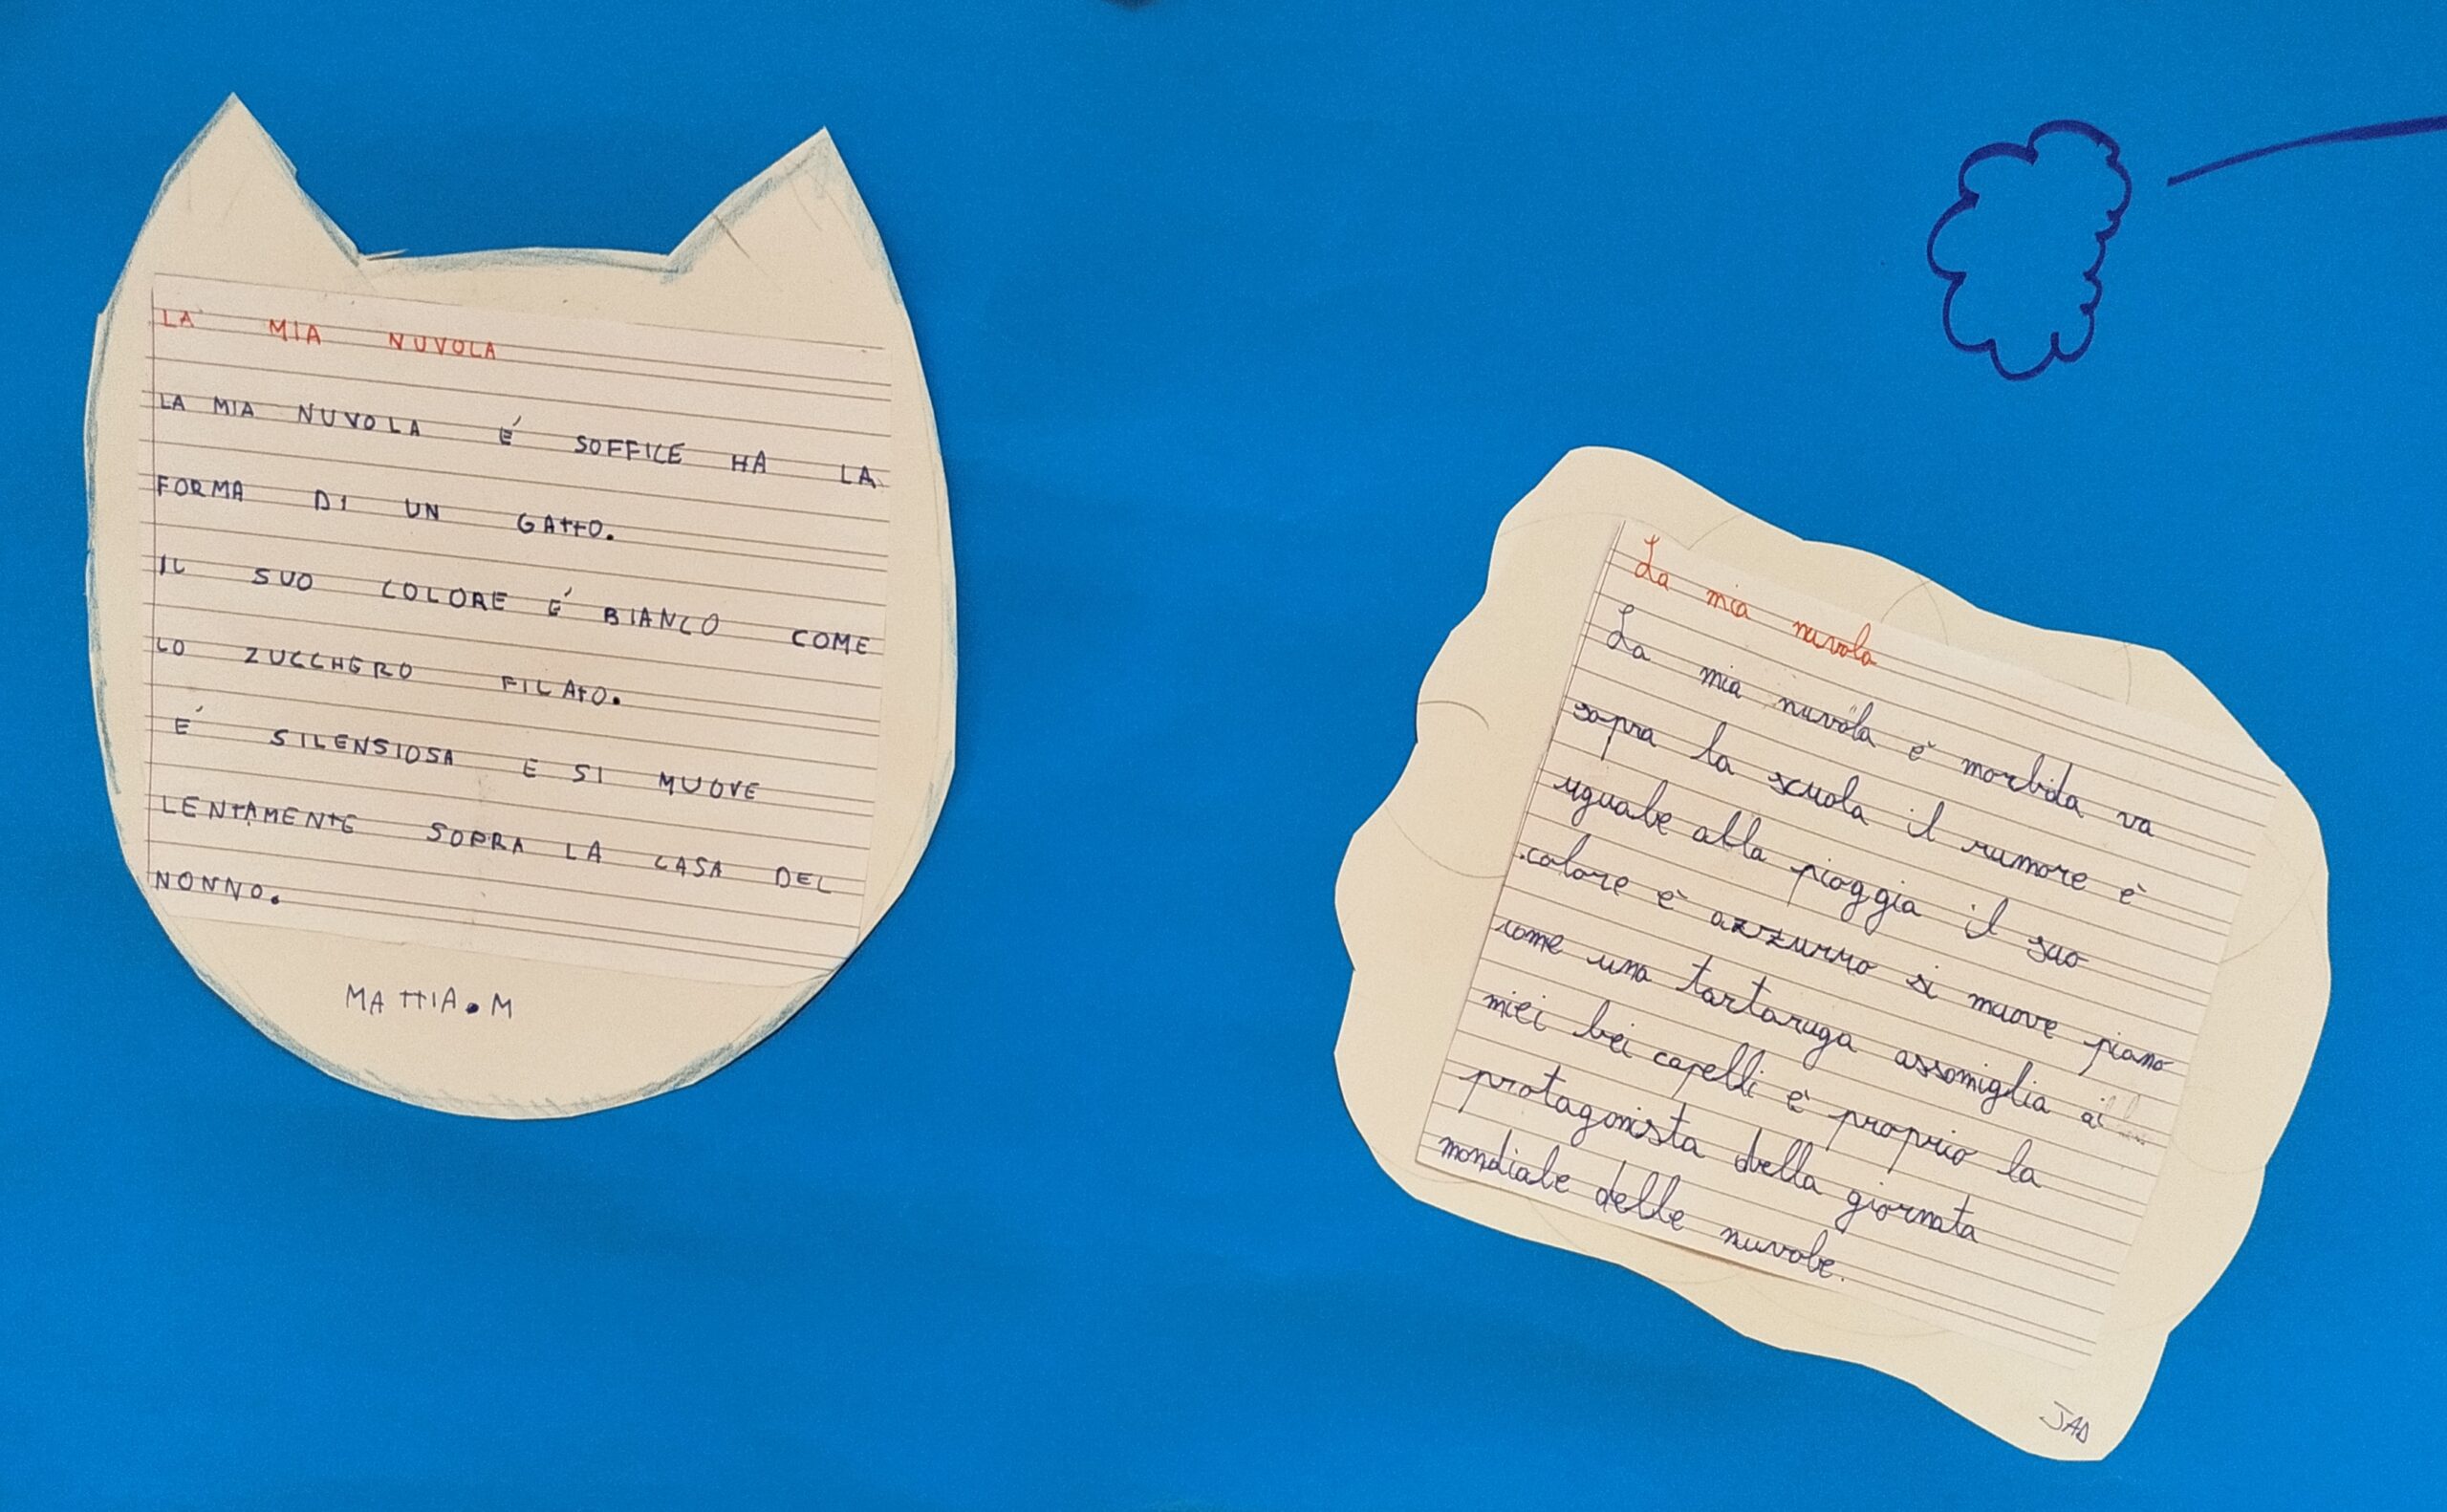 LA MIA NUVOLA
LA MIA NUVOLA É SOFFICE HA LA
FORMA DI UN GATTO.
IL SUO COLORE É BIANCO COME
LO ZUCCHERO FILATO.
É SILENSIOSA E SI MUOVE
LENTAMENTE SOPRA LA CASA DEL
NONNO.
MATTIA.M
La mia nuvola
La mia nuvola è morbida va
sopra la scuola il rumore è
uguale alla pioggia il suo
colore è azzurro si muove piano
come una tartaruga assomiglia ai
miei bei capelli è proprio la
protagonista della giornata
mondiale delle nuvole.
JAD